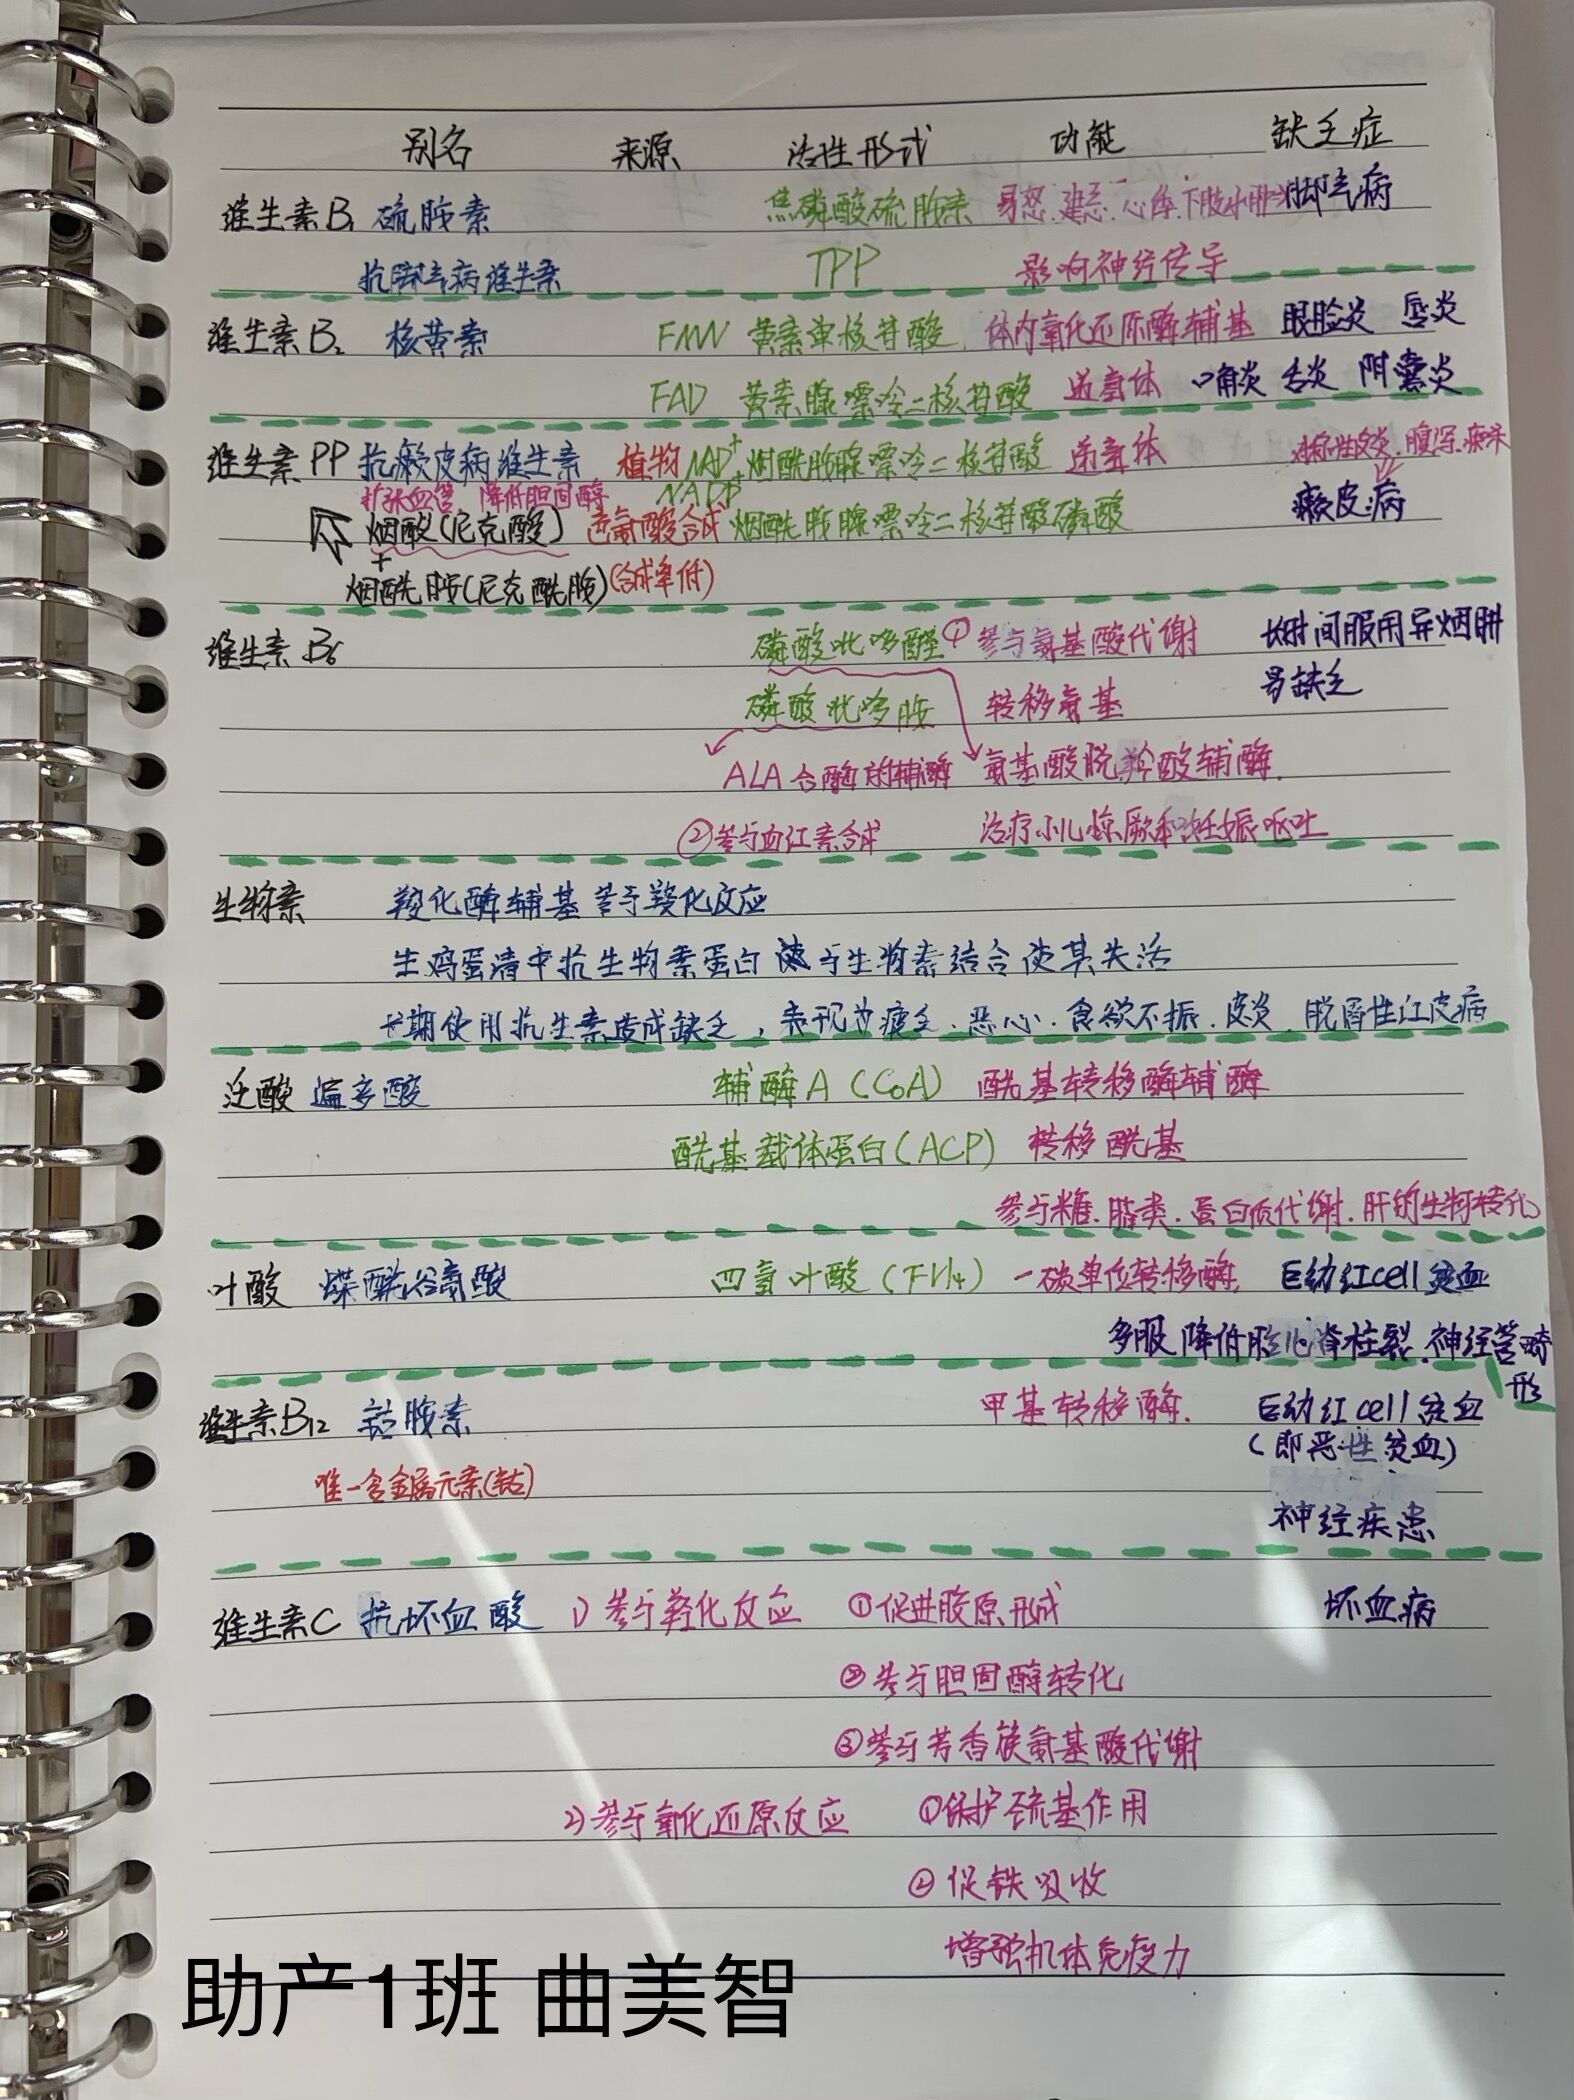 别名 来源 活性形式 功能 缺乏症
维生素B₁ 硫胺素 焦磷酸硫胺素 易怒.健忘.心悸.下肢水肿 脚气病
抗脚气病维生素 TPP 影响神经传导
维生素B₂ 核黄素 FMN 黄素单核苷酸 体内氧化还原酶辅基 眼睑炎 唇炎
FAD 黄素腺嘌呤二核苷酸 递氢体 口角炎 舌炎 阴囊炎
维生素PP 抗癞皮病维生素 植物 NAD⁺ 烟酰胺腺嘌呤二核苷酸 递氢体 对称性皮炎.腹泻.痴呆
扩张血管、降低胆固醇 NADP⁺
烟酸(尼克酸) 色氨酸合成 烟酰胺腺嘌呤二核苷酸磷酸 癞皮病
+
烟酰胺(尼克酰胺) (合成率低)
维生素B₆ 磷酸吡哆醛 ①参与氨基酸代谢 长时间服用异烟肼
磷酸吡哆胺 转移氨基 易缺乏
ALA合酶的辅酶 氨基酸脱羧酸辅酶.
②参与血红素合成 治疗小儿惊厥和妊娠呕吐
生物素 羧化酶辅基 参与羧化反应
生鸡蛋清中抗生物素蛋白 与生物素结合使其失活
长期使用抗生素造成缺乏，表现为疲乏.恶心.食欲不振.皮炎.脱屑性红皮病
泛酸 遍多酸 辅酶A(CoA) 酰基转移酶辅酶
酰基载体蛋白(ACP) 转移酰基
参与糖.脂类.蛋白质代谢.肝的生物转化
叶酸 蝶酰谷氨酸 四氢叶酸(FH₄) 一碳单位转移酶. 巨幼红cell贫血
多服降低胎儿脊柱裂.神经管畸形
维生素B₁₂ 钴胺素 甲基转移酶. 巨幼红cell贫血
(即恶性贫血)
唯一含金属元素(钴)
神经疾患
维生素C 抗坏血酸 1)参与羟化反应 ①促进胶原形成 坏血病
②参与胆固醇转化
③参与芳香族氨基酸代谢
2)参与氧化还原反应 ①保护巯基作用
②促铁吸收
增强机体免疫力
助产1班 曲美智